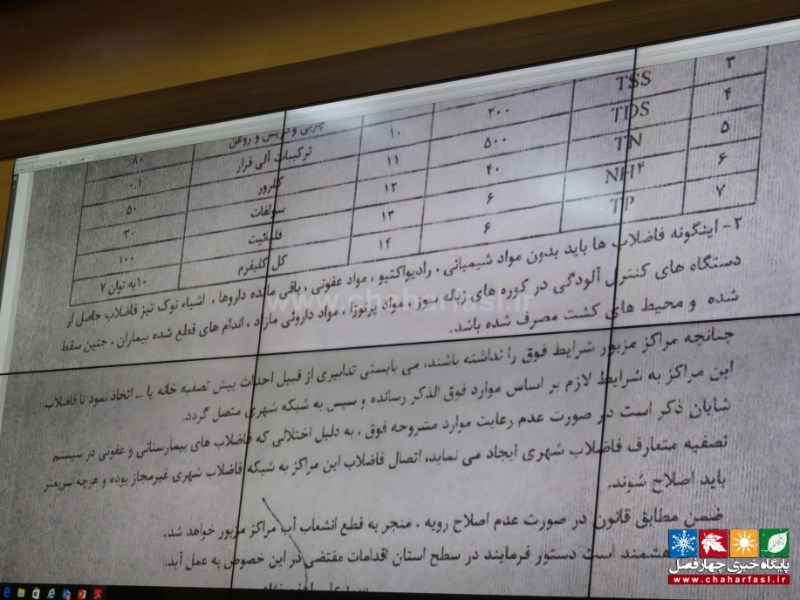 ۳ TSS ۲۰۰ ۱۰ چربی و گریس و روغن ۸۰
۴ TDS ۵۰۰ ۱۱ ترکیبات آلی فرار ۰.۱
۵ TN ۴۰ ۱۲ کلرور ۵۰
۶ NH۴ ۶ ۱۳ سولفات ۳۰
۷ TP ۶ ۱۴ قلیائیت ۱۰۰
کل کلیفرم ۱۰به توان ۷
۲- اینگونه فاضلاب ها باید بدون مواد شیمیائی ، رادیواکتیو ، مواد عفونی ، باقی مانده داروها ، اشیاء نوک تیز فاضلاب حاصل از
دستگاه های کنترل آلودگی در کوره های زباله سوز ، مواد پرتوزا ، مواد داروئی مازاد ، اندام های قطع شده بیماران ، جنین سقط
شده و محیط های کشت مصرف شده باشد.
چنانچه مراکز مزبور شرایط فوق را نداشته باشند، می بایستی تدابیری از قبیل احداث پیش تصفیه خانه یا ... اتخاذ نمود تا فاضلاب
این مراکز به شرایط لازم بر اساس موارد فوق الذکر رسانده و سپس به شبکه شهری متصل گردد.
شایان ذکر است در صورت عدم رعایت موارد مشروحه فوق ، به دلیل اختلالی که فاضلاب های بیمارستانی و عفونی در سیستم
تصفیه متعارف فاضلاب شهری ایجاد می نماید، اتصال فاضلاب این مراکز به شبکه فاضلاب شهری غیرمجاز بوده و هرچه سریعتر
باید اصلاح شوند.
ضمن مطابق قانون در صورت عدم اصلاح رویه ، منجر به قطع انشعاب آب مراکز مزبور خواهد شد.
است دستور فرمایند در سطح استان اقدامات مقتضی در این خصوص به عمل آید.
www.chaharfasl.ir
پایگاه خبری چهارفصل
www.chaharfasl.ir